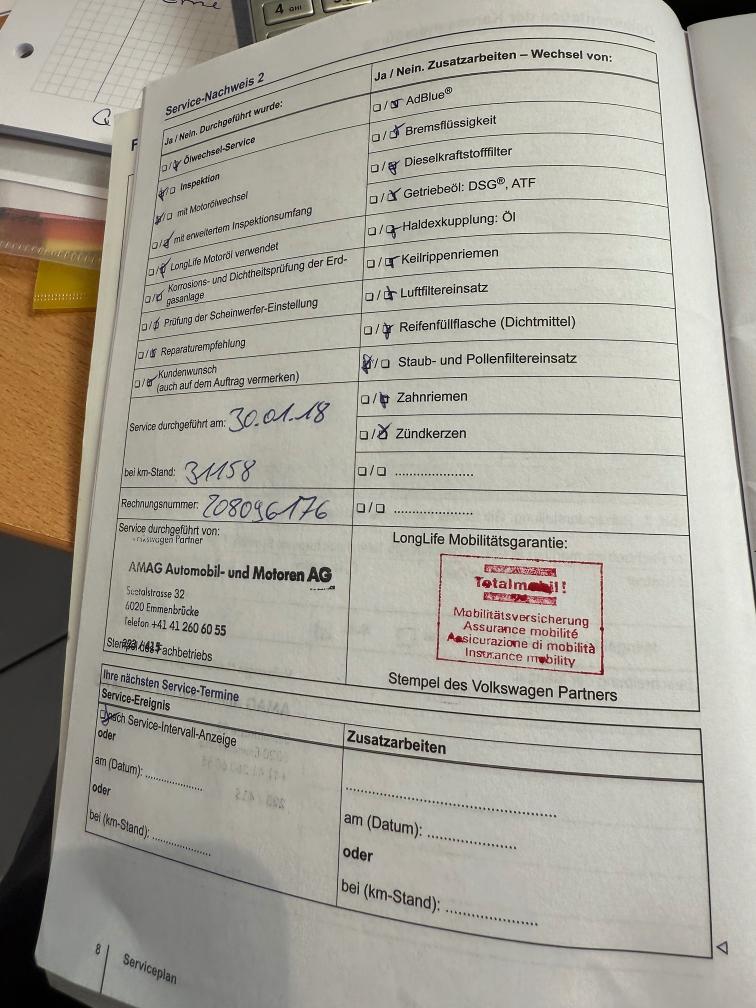 4 GHI
Service-Nachweis 2
Ja / Nein. Durchgeführt wurde:
☐/☑ Ölwechsel-Service
☑/☐ Inspektion
☑/☐ mit Motorölwechsel
☐/☑ mit erweitertem Inspektionsumfang
☐/☑ LongLife Motoröl verwendet
☐/☑ Korrosions- und Dichtheitsprüfung der Erd-
gasanlage
☐/☑ Prüfung der Scheinwerfer-Einstellung
☐/☑ Reparaturempfehlung
☐/☑ Kundenwunsch
(auch auf dem Auftrag vermerken)
Service durchgeführt am: 30.01.18
bei km-Stand: 31158
Rechnungsnummer: 208096176
Service durchgeführt von:
Volkswagen Partner
AMAG Automobil- und Motoren AG
Seetalstrasse 32
6020 Emmenbrücke
Telefon +41 41 260 60 55
Stempel des Fachbetriebs
Ja / Nein. Zusatzarbeiten – Wechsel von:
☐/☑ AdBlue®
☐/☑ Bremsflüssigkeit
☐/☑ Dieselkraftstofffilter
☐/☑ Getriebeöl: DSG®, ATF
☐/☑ Haldexkupplung: Öl
☐/☑ Keilrippenriemen
☐/☑ Luftfiltereinsatz
☐/☑ Reifenfüllflasche (Dichtmittel)
☑/☐ Staub- und Pollenfiltereinsatz
☐/☑ Zahnriemen
☐/☑ Zündkerzen
☐/☐ ......................
☐/☐ ......................
LongLife Mobilitätsgarantie:
Totalmobil!
Mobilitätsversicherung
Assurance mobilité
Assicurazione di mobilità
Insurance mobility
Stempel des Volkswagen Partners
Ihre nächsten Service-Termine
Service-Ereignis
☑ nach Service-Intervall-Anzeige
oder
am (Datum): ................
oder
bei (km-Stand): ................
Zusatzarbeiten
..........................................................
am (Datum): ........................
oder
bei (km-Stand): ........................
8
Serviceplan